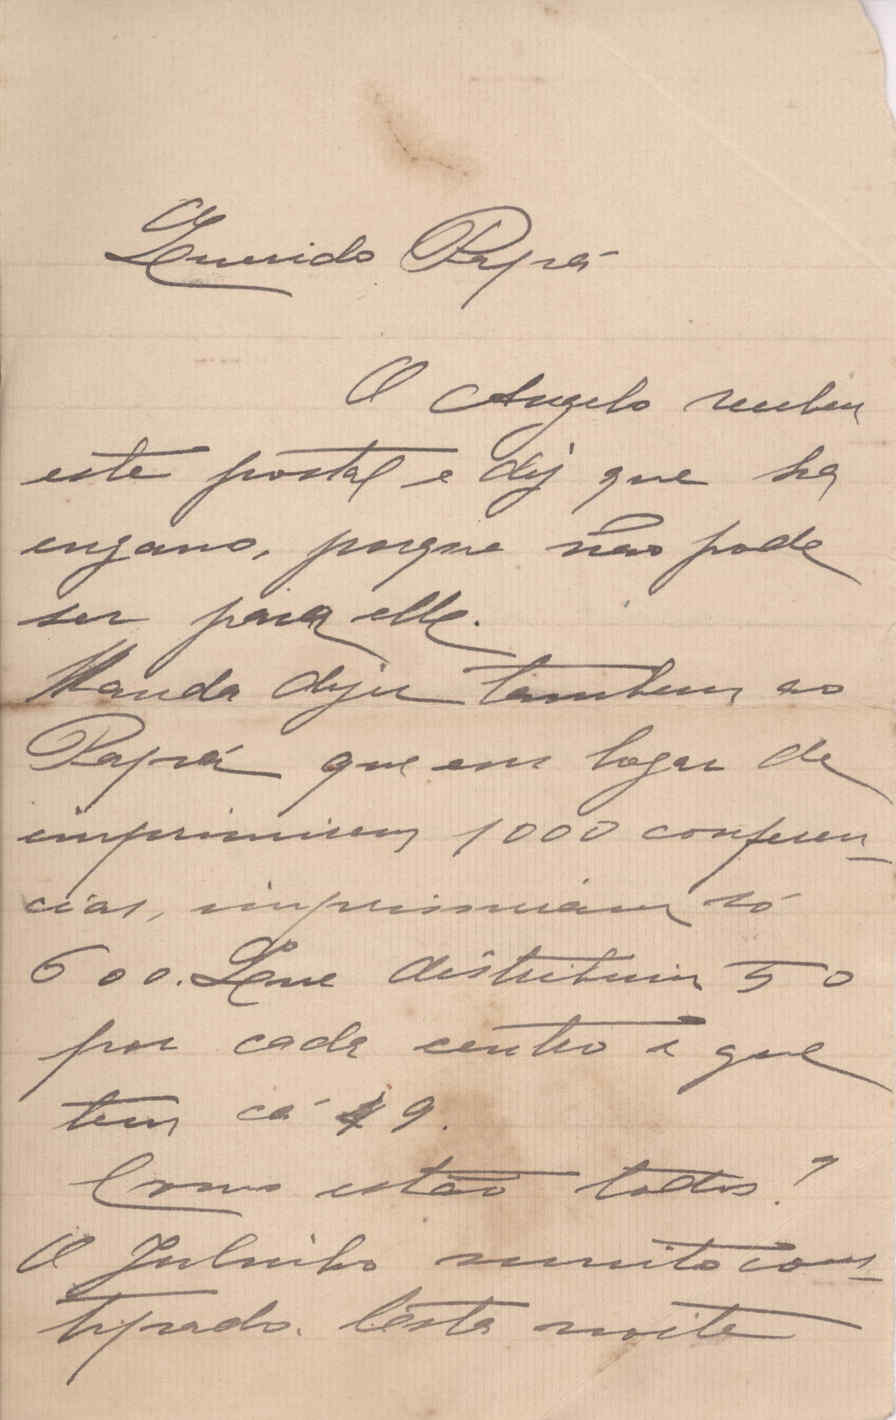 Querido Papá
O Angelo recebeu
este postal e diz que ha
engano, porque não pode
ser para elle.
Manda dizer tambem ao
Papá que em logar de
imprimirem 1000 conferen-
cias, imprimiram só
600. Que distribuin 50
por cada centro e que
tem cá 49.
Como estão todos?
O Julinho muito cons-
tipado. Esta noite